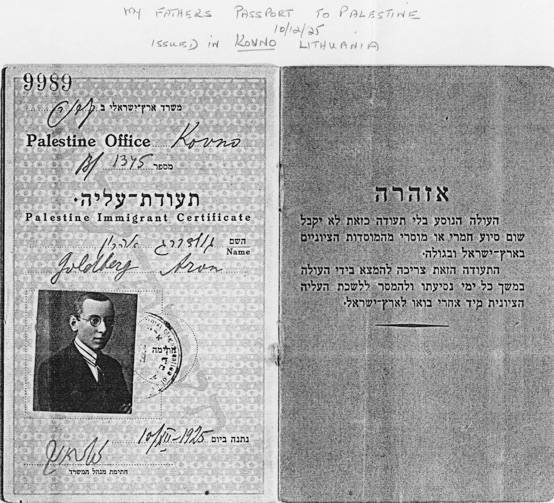 MY FATHERS PASSPORT TO PALESTINE
10/12/25
ISSUED IN KOVNO LITHUANIA
9989
משרד ארץ-ישראלי ב
Palestine Office Kovno
מספר 1345
תעודת-עליה·
Palestine Immigrant Certificate
השם גולדברג אהרון
Name
Goldberg Aron
חתימה
נתנה ביום 10/XII-1925
חתימת מנהל המשרד
אזהרה
העולה הנוסע בלי תעודה כזאת לא יקבל
שום סיוע חמרי או מוסרי מהמוסדות הציוניים
בארץ-ישראל ובגולה·
התעודה הזאת צריכה להמצא בידי העולה
במשך כל ימי נסיעתו ולהמסר ללשכת העליה
הציונית מיד אחרי בואו לארץ-ישראל·